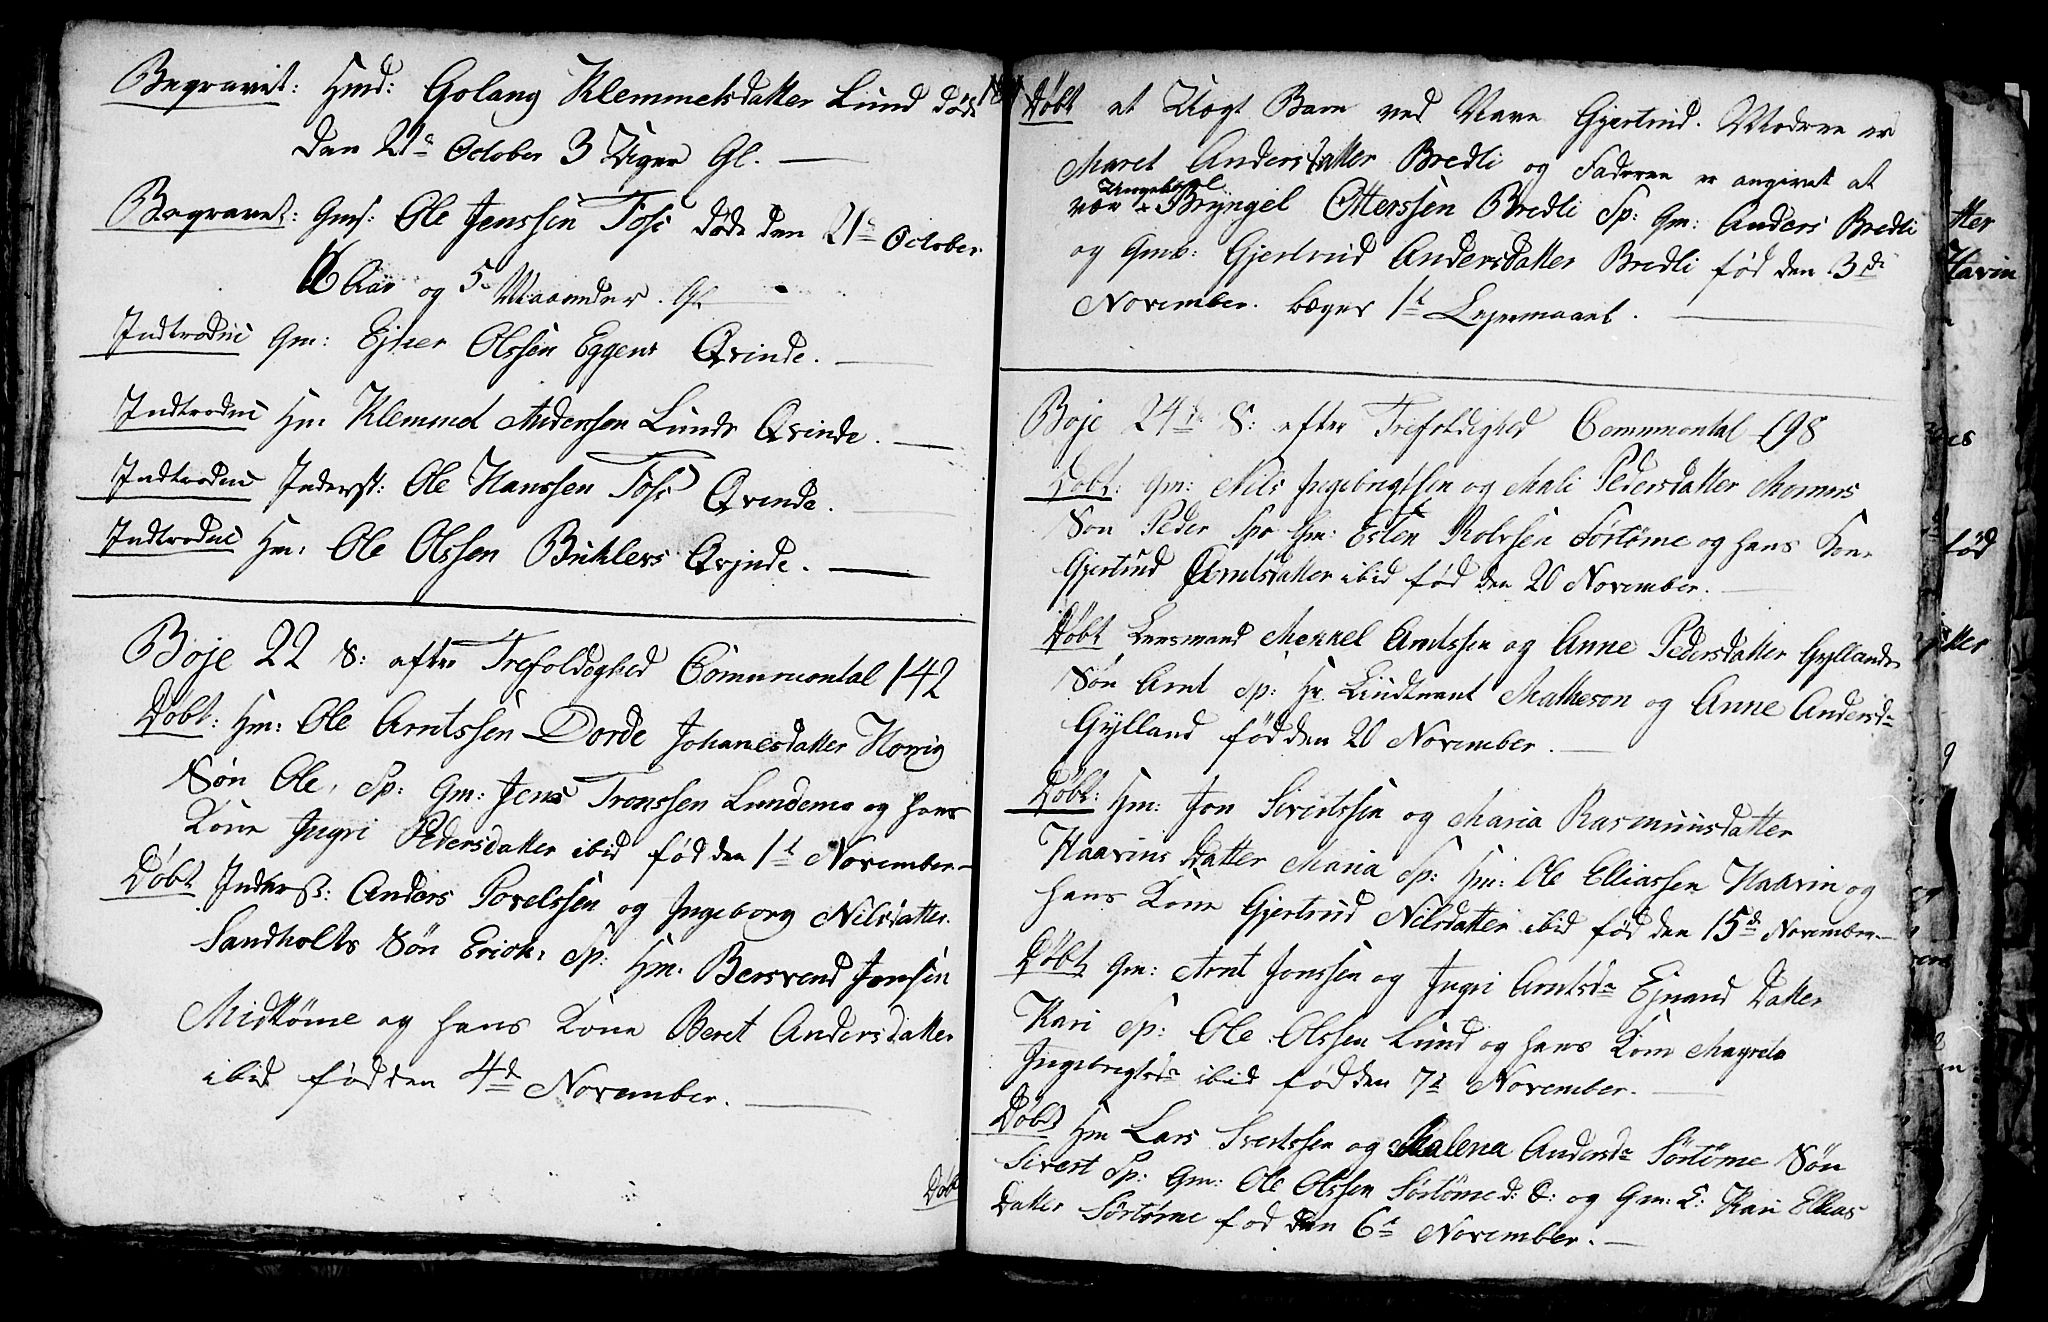 Begravet: Hmd: Golang Klemmetsdatter Lund døde
den 21de October 3 Uger Gl.
Begravet: Gms: Ole Jenssen Foss døde den 21de October
Aar og 5 Maaneder. Gl
Indtroduc Gm: Ejner Olssen Eggens Qvinde.
Indtroduc Hm Klemmed Anderssen Lunds Qvinde.
Indtroduc Inderst: Ole Hanssen Foss Qvinde.
Indtroduc Hm: Ole Olssen Buhlers Qvjnde.
Boje 22 S: efter Trefoldighed Communontal 142
Døbt: Hm: Ole Arntssen Dorde Johanesdatter Hovig
Søn Ole, Sp: Gm: Jens Tronssen Lundemo og hans
Kone Ingri Pedersdatter ibid fød den 1t November
Døbt Inderst: Anders Povelssen og Ingeborg Nilsdatter
Sandholts Søn Erick, Sp: Hm. Bersvend Jonsen
Midtøme og hans Kone Beret Andersdatter
ibid fød den 4de November.
Døbt
Døbt et Uægt Barn ved Navn Gjertrud. Modren er
Maret Andersdatter Bredli og Fadren er angivet at
Ungekarl
vær Bryngel Otterssen Bredli Sp: Gm: Anders Bredli
og Gmd: Gjertrud Andersdatter Bredli fød den 3de
November. begges 1t Lejermaael.
Boje 24de S: efter Trefoldighed Communontal 198
Døbt: Gm: Nils Ingebrigtsen og Mali Pedersdatter Momus
Søn Peder Sp Gm: Esten Rolvsen Sørtøme og hans Kone
Gjertrud Arntsdatter ibid fød den 20 November.
Døbt Lensmand Mekkel Arntssen og Anne Pedersdatter Gyllands
Søn Arnt Sp: Hr. Liudtnant Matheson og Anne Andersdr
Gylland fød den 20 November.
Døbt: Hm: Jon Sivertssen og Maria Rasmuusdatter
Haavins Datter Maria Sp: Hm: Ole Elliassen Haavin og
hans Kone Gjertrud Nilsdatter ibid fød den 15de November
Døbt Gm: Arnt Jonssen og Ingri Arntsdr Ejnand Datter
Kari Sp: Ole Olssen Lund og hans Kone Magreta
Ingebrigtsdr ibid fød den 7de November.
Døbt Hm Lars Svertssen og Malena Andersdr Sørtøme Søn
Sivert Sp: Gm: Ole Olssen Sørtøme d: Æ: og Gm: E: Kari Ellias
Datter Sørtørne fød den 6te November.